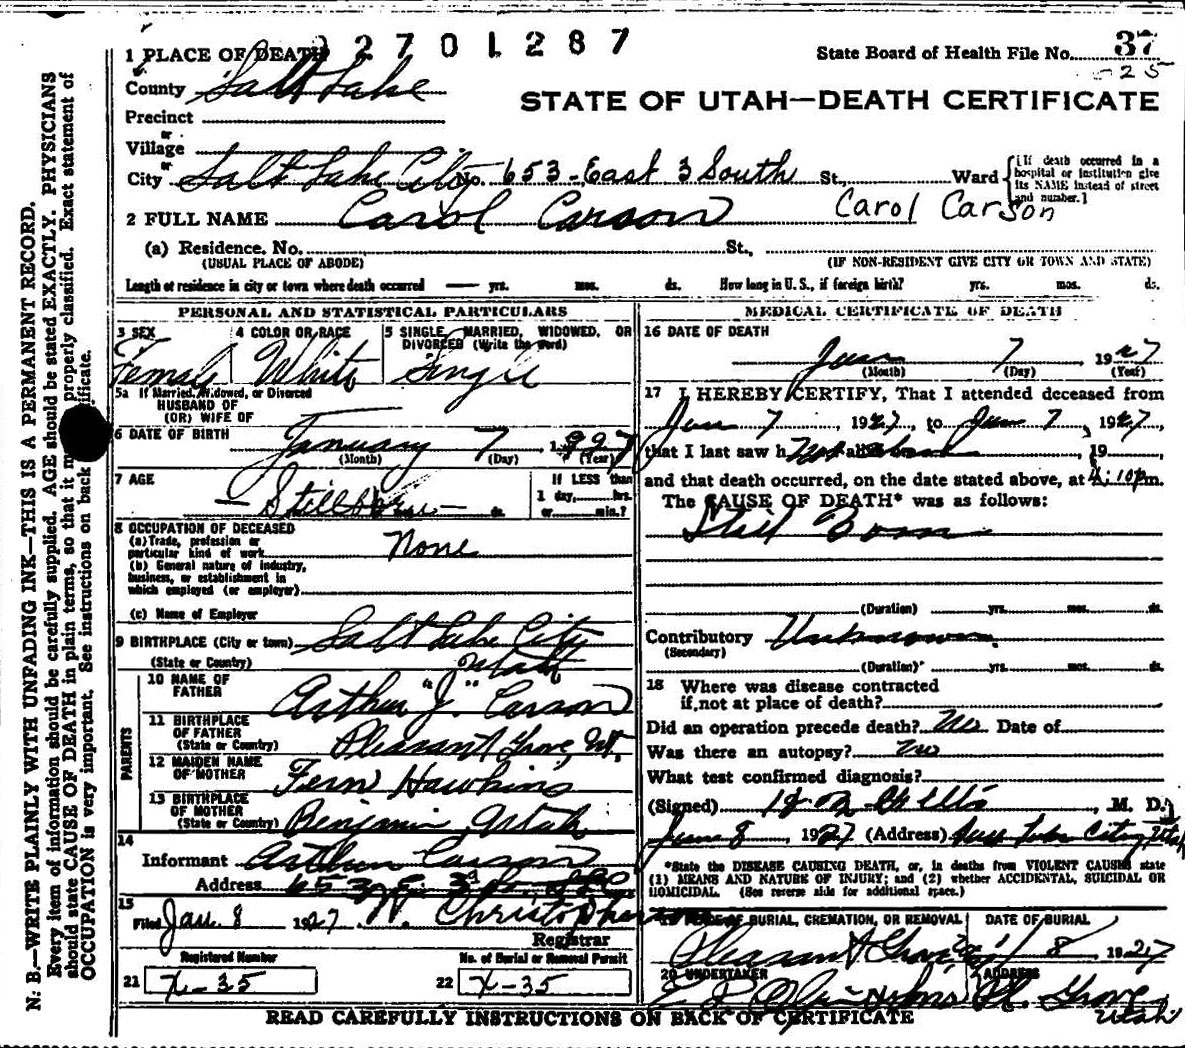 2701287
1 PLACE OF DEATH
State Board of Health File No. 37
-25
County Salt Lake
STATE OF UTAH—DEATH CERTIFICATE
Precinct
or
Village
or
City Salt Lake City No. 653-East 3 South St., Ward
{[If death occurred in a
hospital or institution give
its NAME instead of street
and number.]
2 FULL NAME Carol Carson Carol Carson
(a) Residence. No. St.,
(USUAL PLACE OF ABODE) (IF NON-RESIDENT GIVE CITY OR TOWN AND STATE)
Length of residence in city or town where death occurred — yrs. mos. ds. How long in U. S., if foreign birth? yrs. mos. ds.
PERSONAL AND STATISTICAL PARTICULARS
3 SEX 4 COLOR OR RACE 5 SINGLE, MARRIED, WIDOWED, OR
DIVORCED (Write the word)
Female White Single
5a If Married, Widowed, or Divorced
HUSBAND OF
(OR) WIFE OF
6 DATE OF BIRTH January 7 1927
(Month) (Day) (Year)
7 AGE If LESS than
— Stillborn — ds. 1 day, hrs.
or min.?
8 OCCUPATION OF DECEASED
(a) Trade, profession or
particular kind of work None
(b) General nature of industry,
business, or establishment in
which employed (or employer)
(c) Name of Employer
9 BIRTHPLACE (City or town) Salt Lake City
(State or Country) Utah
PARENTS
10 NAME OF
FATHER Arthur "J" Carson
11 BIRTHPLACE
OF FATHER
(State or Country) Pleasant Grove, Ut.
12 MAIDEN NAME
OF MOTHER Fern Hawkins
13 BIRTHPLACE
OF MOTHER
(State or Country) Benjamin, Utah
14
Informant Arthur Carson
Address 653 E. 3d So.
15
Filed Jan. 8 1927 W. Christopherson
Registrar
Registered Number No. of Burial or Removal Permit
21 X-35 22 X-35
MEDICAL CERTIFICATE OF DEATH
16 DATE OF DEATH
Jan 7 1927
(Month) (Day) (Year)
17 I HEREBY CERTIFY, That I attended deceased from
Jan 7, 1927, to Jan 7, 1927,
that I last saw h alive on , 19 ,
and that death occurred, on the date stated above, at 4:10 p m.
The CAUSE OF DEATH* was as follows:
Still Born
(Duration) yrs. mos. ds.
Contributory Unknown.
(Secondary)
(Duration) yrs. mos. ds.
18 Where was disease contracted
if not at place of death?
Did an operation precede death? No Date of
Was there an autopsy? No
What test confirmed diagnosis?
(Signed) , M. D.
Jan 8 1927 (Address) Salt Lake City, Utah
*State the DISEASE CAUSING DEATH, or, in deaths from VIOLENT CAUSES state
(1) MEANS AND NATURE OF INJURY; and (2) whether ACCIDENTAL, SUICIDAL OR
HOMICIDAL. (See reverse side for additional space.)
19 PLACE OF BURIAL, CREMATION, OR REMOVAL DATE OF BURIAL
Pleasant Grove 1/8 1927
20 UNDERTAKER ADDRESS
Pl. Grove
Utah
READ CAREFULLY INSTRUCTIONS ON BACK OF CERTIFICATE
N. B.—WRITE PLAINLY WITH UNFADING INK—THIS IS A PERMANENT RECORD.
Every item of information should be carefully supplied. AGE should be stated EXACTLY. PHYSICIANS
should state CAUSE OF DEATH in plain terms, so that it may be properly classified. Exact statement of
OCCUPATION is very important. See instructions on back of certificate.